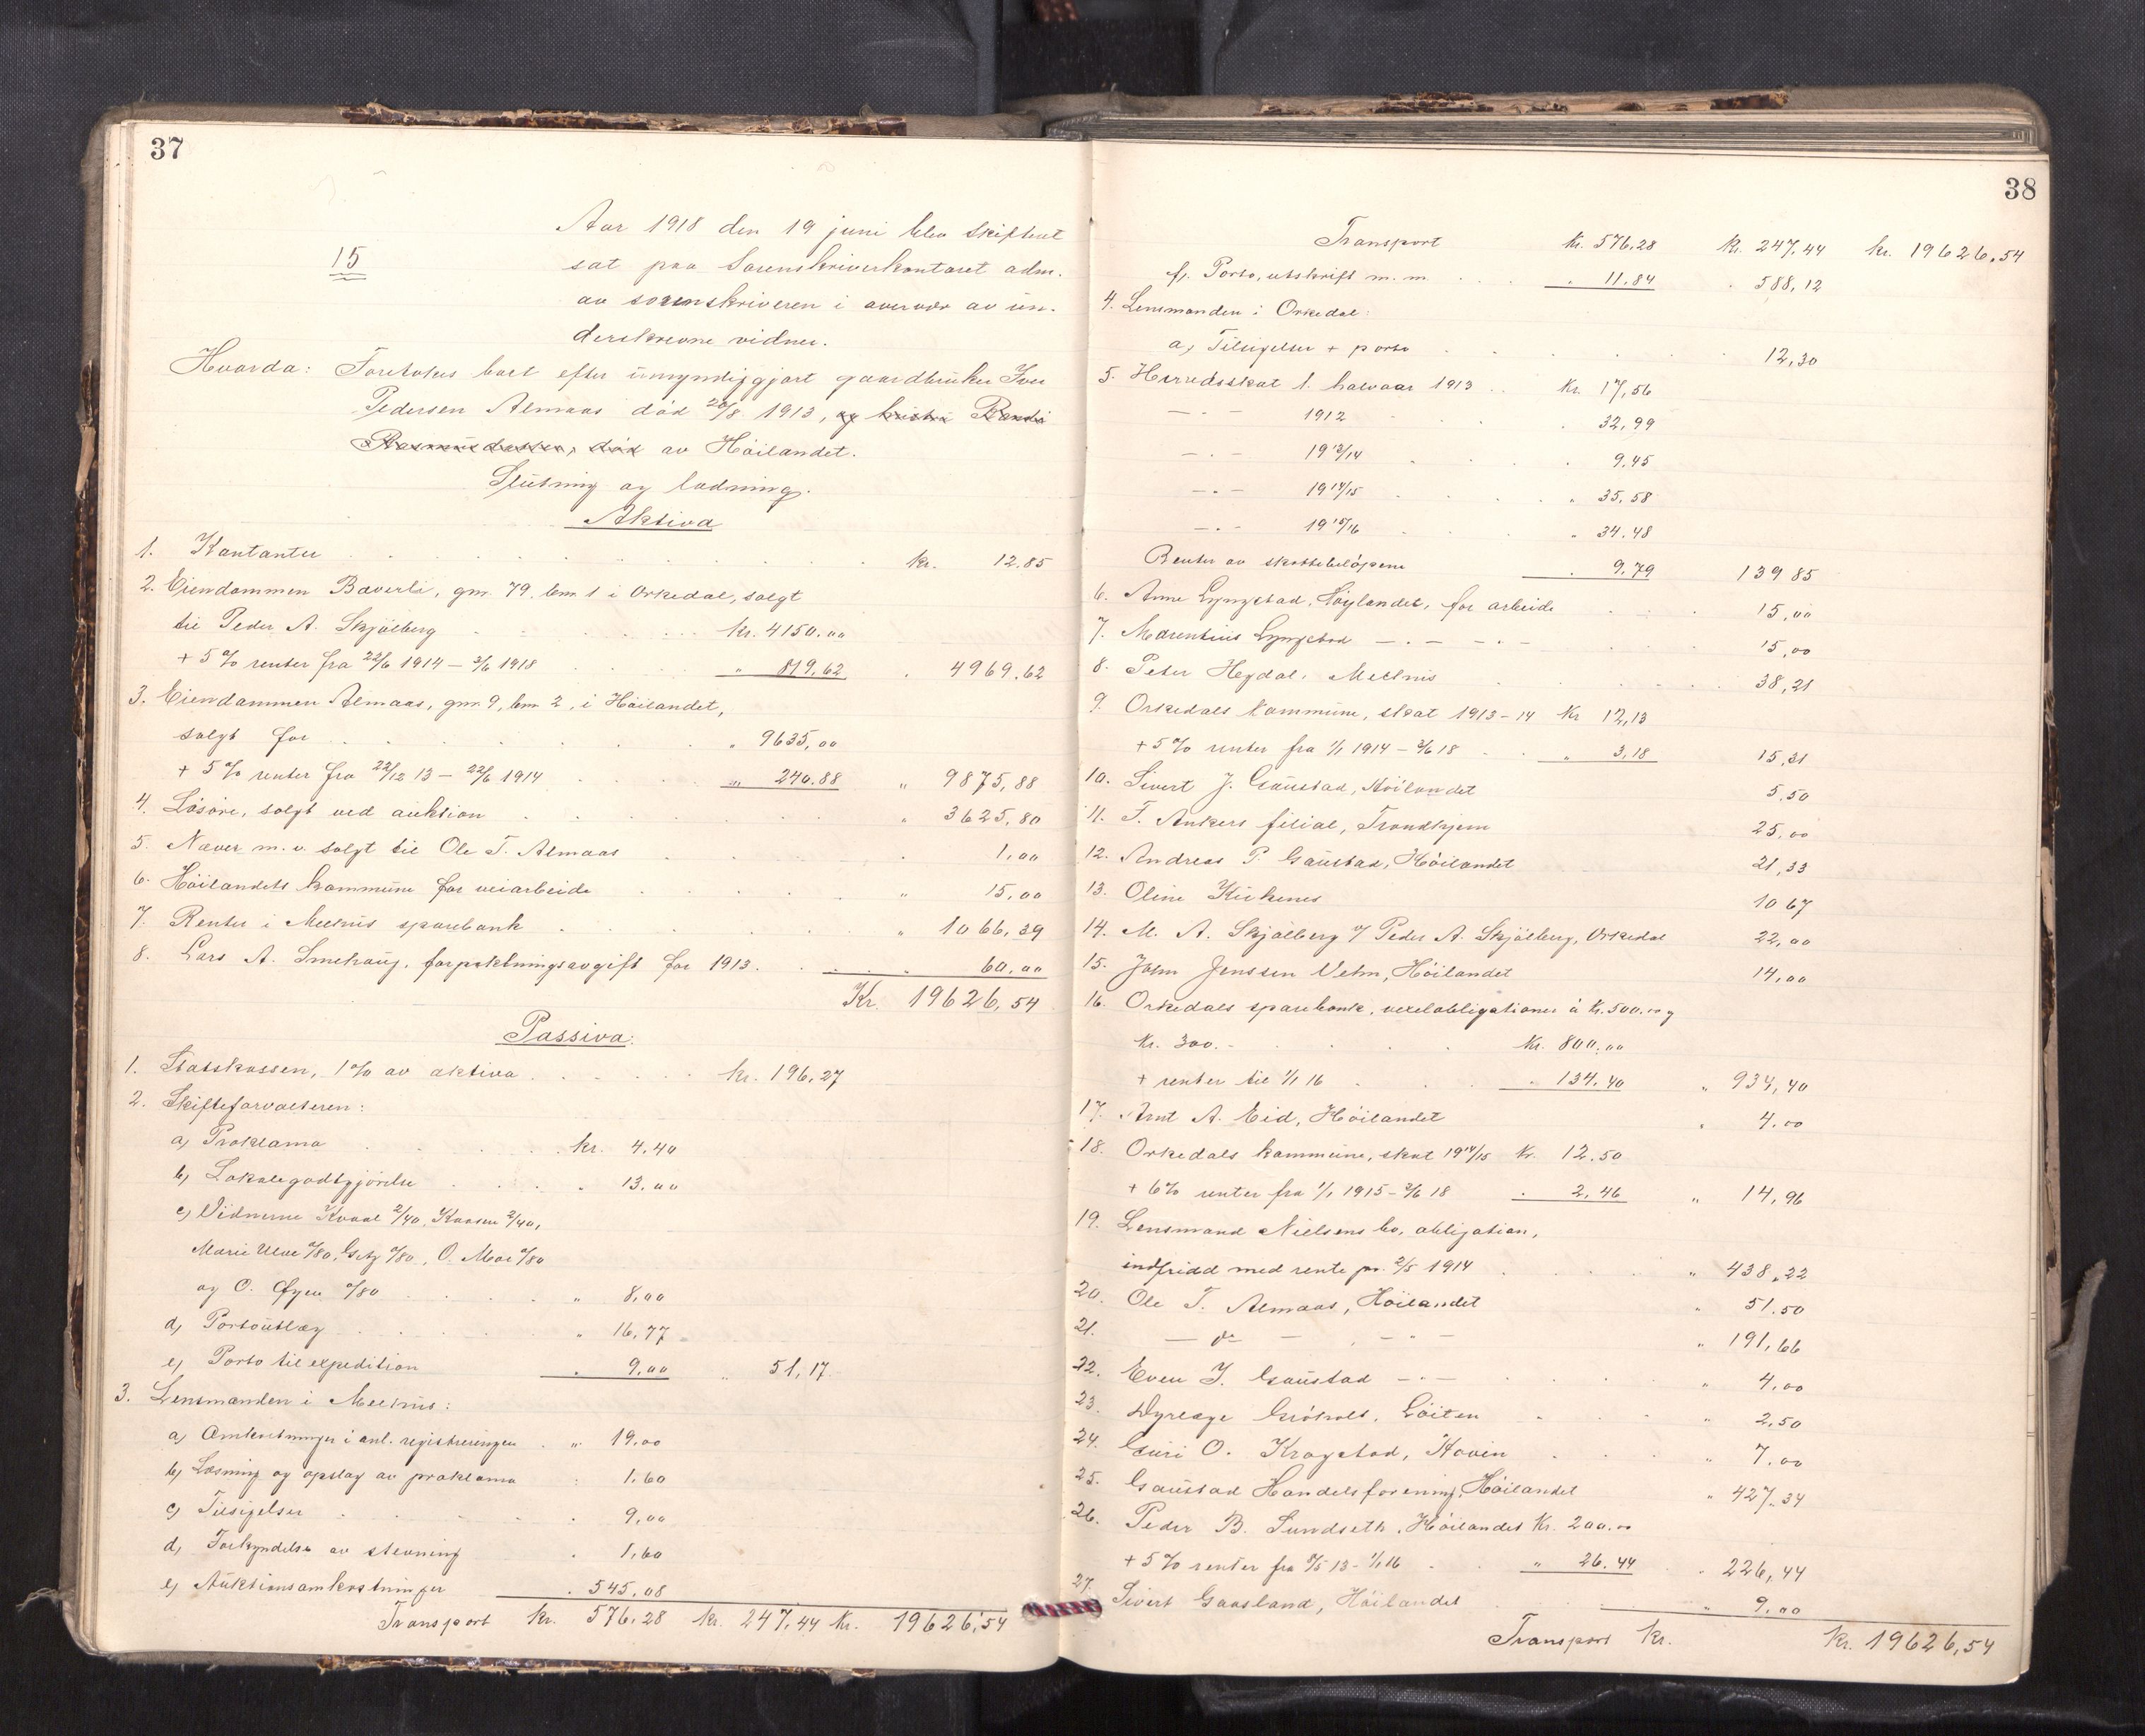 37
15
Aar 1918 den 19 juni blev skifteret
sat paa Sorenskriverkontoret adm.
av sorenskriveren i overvær av un-
derskrevne vidner.
Hvorda: Foretokes boet efter umyndiggjort gaardbruker Iver
Pedersen Almaas död 20/8 1913, og hustru Randi
Rasmusdatter, död av Höilandet.
Slutning og lodning.
Aktiva
1. Kontanter kr. 12.85
2. Eiendommen Baverli, gnr. 79, bnr 1 i Orkedal, solgt
til Peder A. Skjölberg kr. 4150.00
+ 5% renter fra 22/6 1914 – 3/6 1918 " 819,62 " 4969.62
3. Eiendommen Almaas, gnr. 9, bnr 2, i Höilandet,
solgt for " 9635,00
+ 5% renter fra 22/12 13 – 22/6 1914 " 240.88 " 9875,88
4. Lösöre, solgt ved auktion " 3625,80
5. Næver m. v. solgt til Ole T. Almaas " 1,00
6. Höilandets kommune for veiarbeide " 15,00
7. Renter i Melhus sparebank " 1066,39
8. Lars A. Smehaug, forpaktningsavgift for 1913. " 60,00
Kr. 19626,54
Passiva:
1. Statskassen, 1% av aktiva kr. 196,27
2. Skifteforvalteren:
a) Proklama kr. 4.40
b) Lokalegodtgjörelse " 13.00
c) Vidnerne Kvaal 2/40, Kaasen 2/40,
Marie Ulve 0/80, Getz 0/80, O. Moe 0/80
og O. Øyen 0/80 " 8,00
d) Portoutlæg " 16,77
e) Porto til expedition " 9,00 " 51,17
3. Lensmanden i Melhus:
a) Omkostninger i anl. registreringen " 19.00
b) Læsning og opslag av proklama : 1,60
c) Tilsigelser " 9,00
d) Forkyndelse av stevning " 1,60
e) Auktionsomkostninger " 545,08
Transport kr. 576,28 kr. 247,44 kr. 19626,54
38
Transport kr. 576,28 kr. 247,44 kr. 19626,54
f) Porto, utskrift m. m. " 11.84 " 588,12
4. Lensmanden i Orkedal:
a) Tilsigelser + porto 12,30
5. Herredsskat 1. halvaar 1913 kr. 17,56
— " — 1912 " 32,99
— " — 1913/14 " 9.45
— " — 1914/15 " 35,58
— " — 1915/16 " 34.48
Renter av skattebelöpene " 9,79 139 85
6. Anne Lyngstad, Höylandet, for arbeide 15,00
7. Marentius Lyngstad — " — — " — 15,00
8. Peter Hegdal, Melhus 38,21
9. Orkedals kommune, skat 1913–14 Kr 12,13
+ 5% renter fra 1/1 1914 – 3/6 18 " 3,18 15,31
10. Sivert J. Gaustad, Höilandet 5,50
11. F. Ankers filial, Trondhjem 25,00
12. Andreas P. Gaustad, Höilandet 21,33
13. Oline Kirkenes 10 67
14. M. A. Skjölberg v/ Peder A. Skjölberg, Orkedal 22,00
15. John Jenssen Vehn, Höilandet 14,00
16. Orkedals sparebank, vexelobligationer à Kr. 500.00 og
Kr. 300.- Kr. 800.00
+ renter til 1/1 16 " 134.40 " 934,40
17. Arnt A. Eid, Höilandet " 4.00
18. Orkedals kommune, skat 1914/15 Kr. 12.50
+ 6% renter fra 1/1 1915 – 3/6 18 " 2,46 " 14,96
19. Lensmand Nielsens bo, obligation,
indfridd med rente pr. 2/5 1914 " 438,22
20. Ole T. Almaas, Höilandet " 51.50
21. — do — — " — " 191,66
22. Even J. Gaustad — " — " 4,00
23. Dyrlæge Gröholt, Löiten " 2,50
24. Guri O. Krogstad, Hovin " 7.00
25. Gaustad Handelsforening, Höilandet " 427,34
26. Peder B. Sundseth, Höilandet Kr. 200.00
+ 5% renter fra 8/5 13 – 1/1 16 " 26.44 " 226,44
27. Sivert Gaasland, Höilandet " 9,00
Transport kr. kr. 19626,54